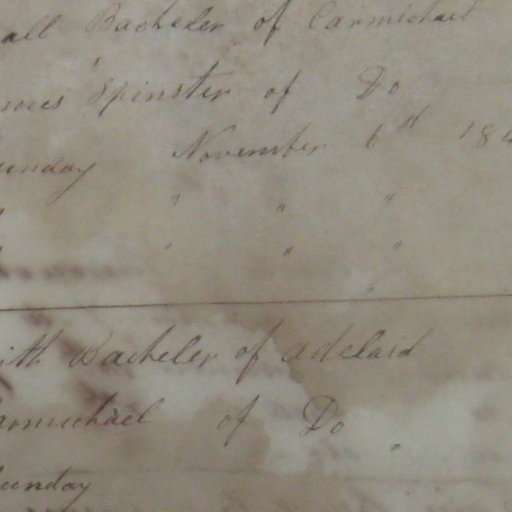 all Bacheler of Carmichael
mes Spinster of Do
unday November 6st 184
" " "
" " "
ith Bacheler of adelaid
armichael of Do
unday